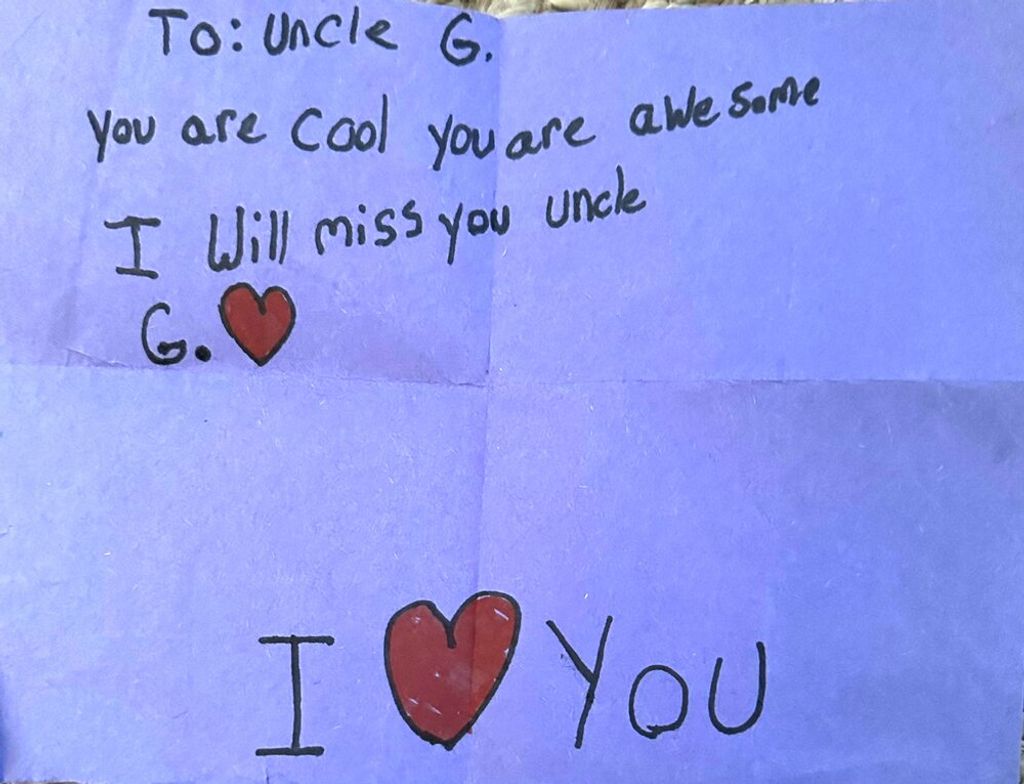 To: Uncle G.
You are cool you are awesome
I Will miss you uncle
G. ❤
I ❤ You